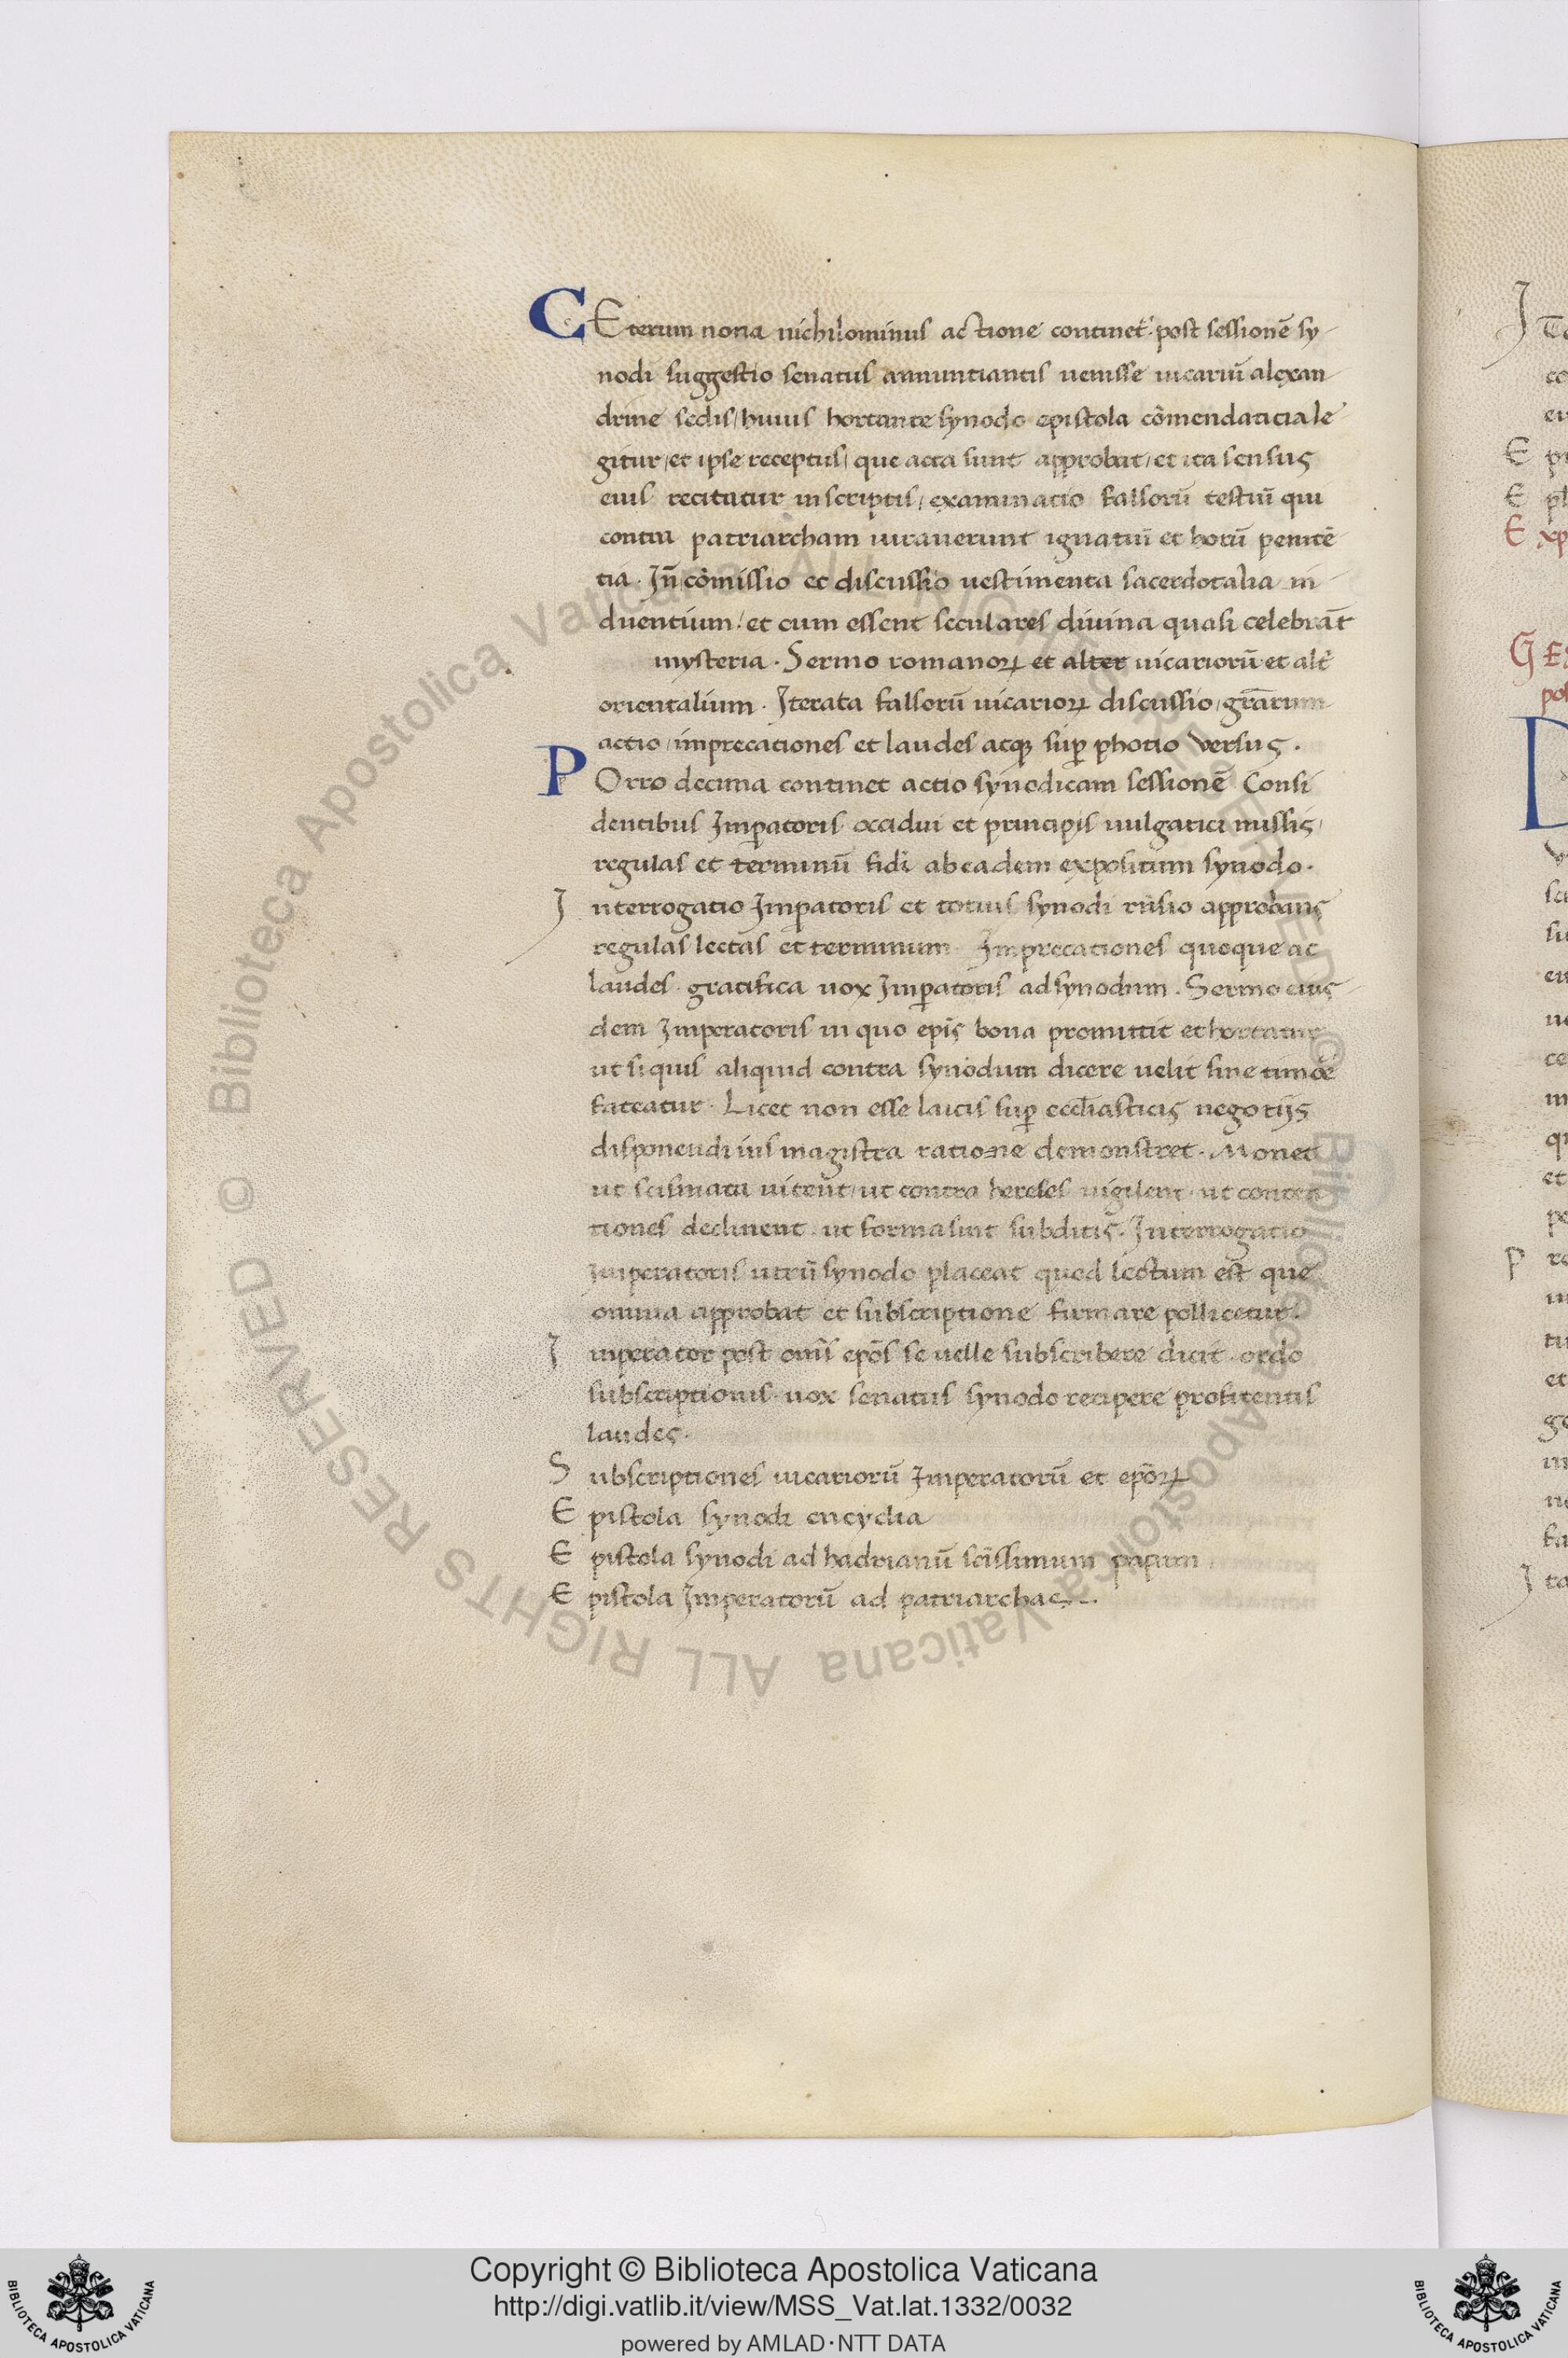 CEterum nona nichilominus actione continet᷑· post sessionē sy-
nodi suggestio senatus annuntiantis uenisse uicariū alexan-
drine sedis/ huius hortante synodo epistola cōmendaticia le-
gitur/ et ipse receptus/ que acta sunt approbat/ et ita sensus
eius recitatur in scriptis/ examinatio falsorū testiū qui
contra patriarcham iurauerunt ignatiū et horū penitē-
tia · Jn̄ cōmissio et discussio uestimenta sacerdotalia in-
duentium/ et cum essent seculares diuina quasi celebrāt
mysteria · Sermo romanoꝝ et alter uicariorū et alt᷑
orientalium · Jterata falsorū uicarioꝝ discussio/ gr̄arum
actio/ imprecationes et laudes atqꝫ suꝑ photio versus ·
POrro decima continet actio synodicam sessionē Consi
dentibus Jmꝑatoris occidui et principis uulgarici missis/
regulas et terminū fidi ab eadem expositum synodo ·
Jnterrogatio Jmꝑatoris et totius synodi rn̄sio approbans
regulas lectas et terminum Jmprecationes quoque ac
laudes · gratifica uox Jmꝑatoris ad synodum · Sermo eius-
dem Jmperatoris in quo ep̄is bona promittit et hortatur
ut si quis aliquid contra synodum dicere uelit sine timōē
fateatur · Licet non esse laicis suꝑ eccl̄iasticis negotijs
disponendi ius magistra ratione demonstret · Monet
ut scismata uitent/ ut contra hereses uigilent · ut conten
tiones declinent · ut forma sint subditis · Jnterrogatio
Jmperatoris utrū synodo placeat quod lectum est que
omnia approbat et subscriptione firmare pollicetur ·
Jmperator post om̄s ep̄os se uelle subscribere dicit · ordo
subscriptionis · uox senatus synodo recipere profitentis
laudes ·
Subscriptiones uicariorū Jmperatorū et ep̄oꝝ
Epistola synodi encyclia
Epistola synodi ad hadrianū sc̄issimum papam
Epistola Jmperatorū ad patriarchas ·
Copyright © Biblioteca Apostolica Vaticana
http://digi.vatlib.it/view/MSS_Vat.lat.1332/0032
powered by AMLAD·NTT DATA
BIBLIOTECA APOSTOLICA VATICANA
BIBLIOTECA APOSTOLICA VATICANA
© Biblioteca Apostolica Vaticana ALL RIGHTS RESERVED © Biblioteca Apostolica Vaticana ALL RIGHTS RESERVED